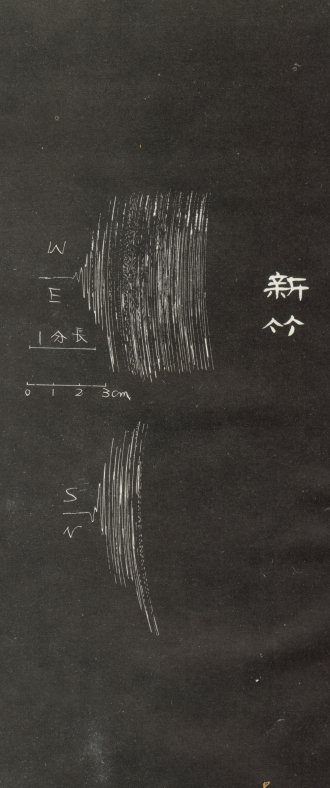 新竹
W
E
1分長
0 1 2 3cm
S
N